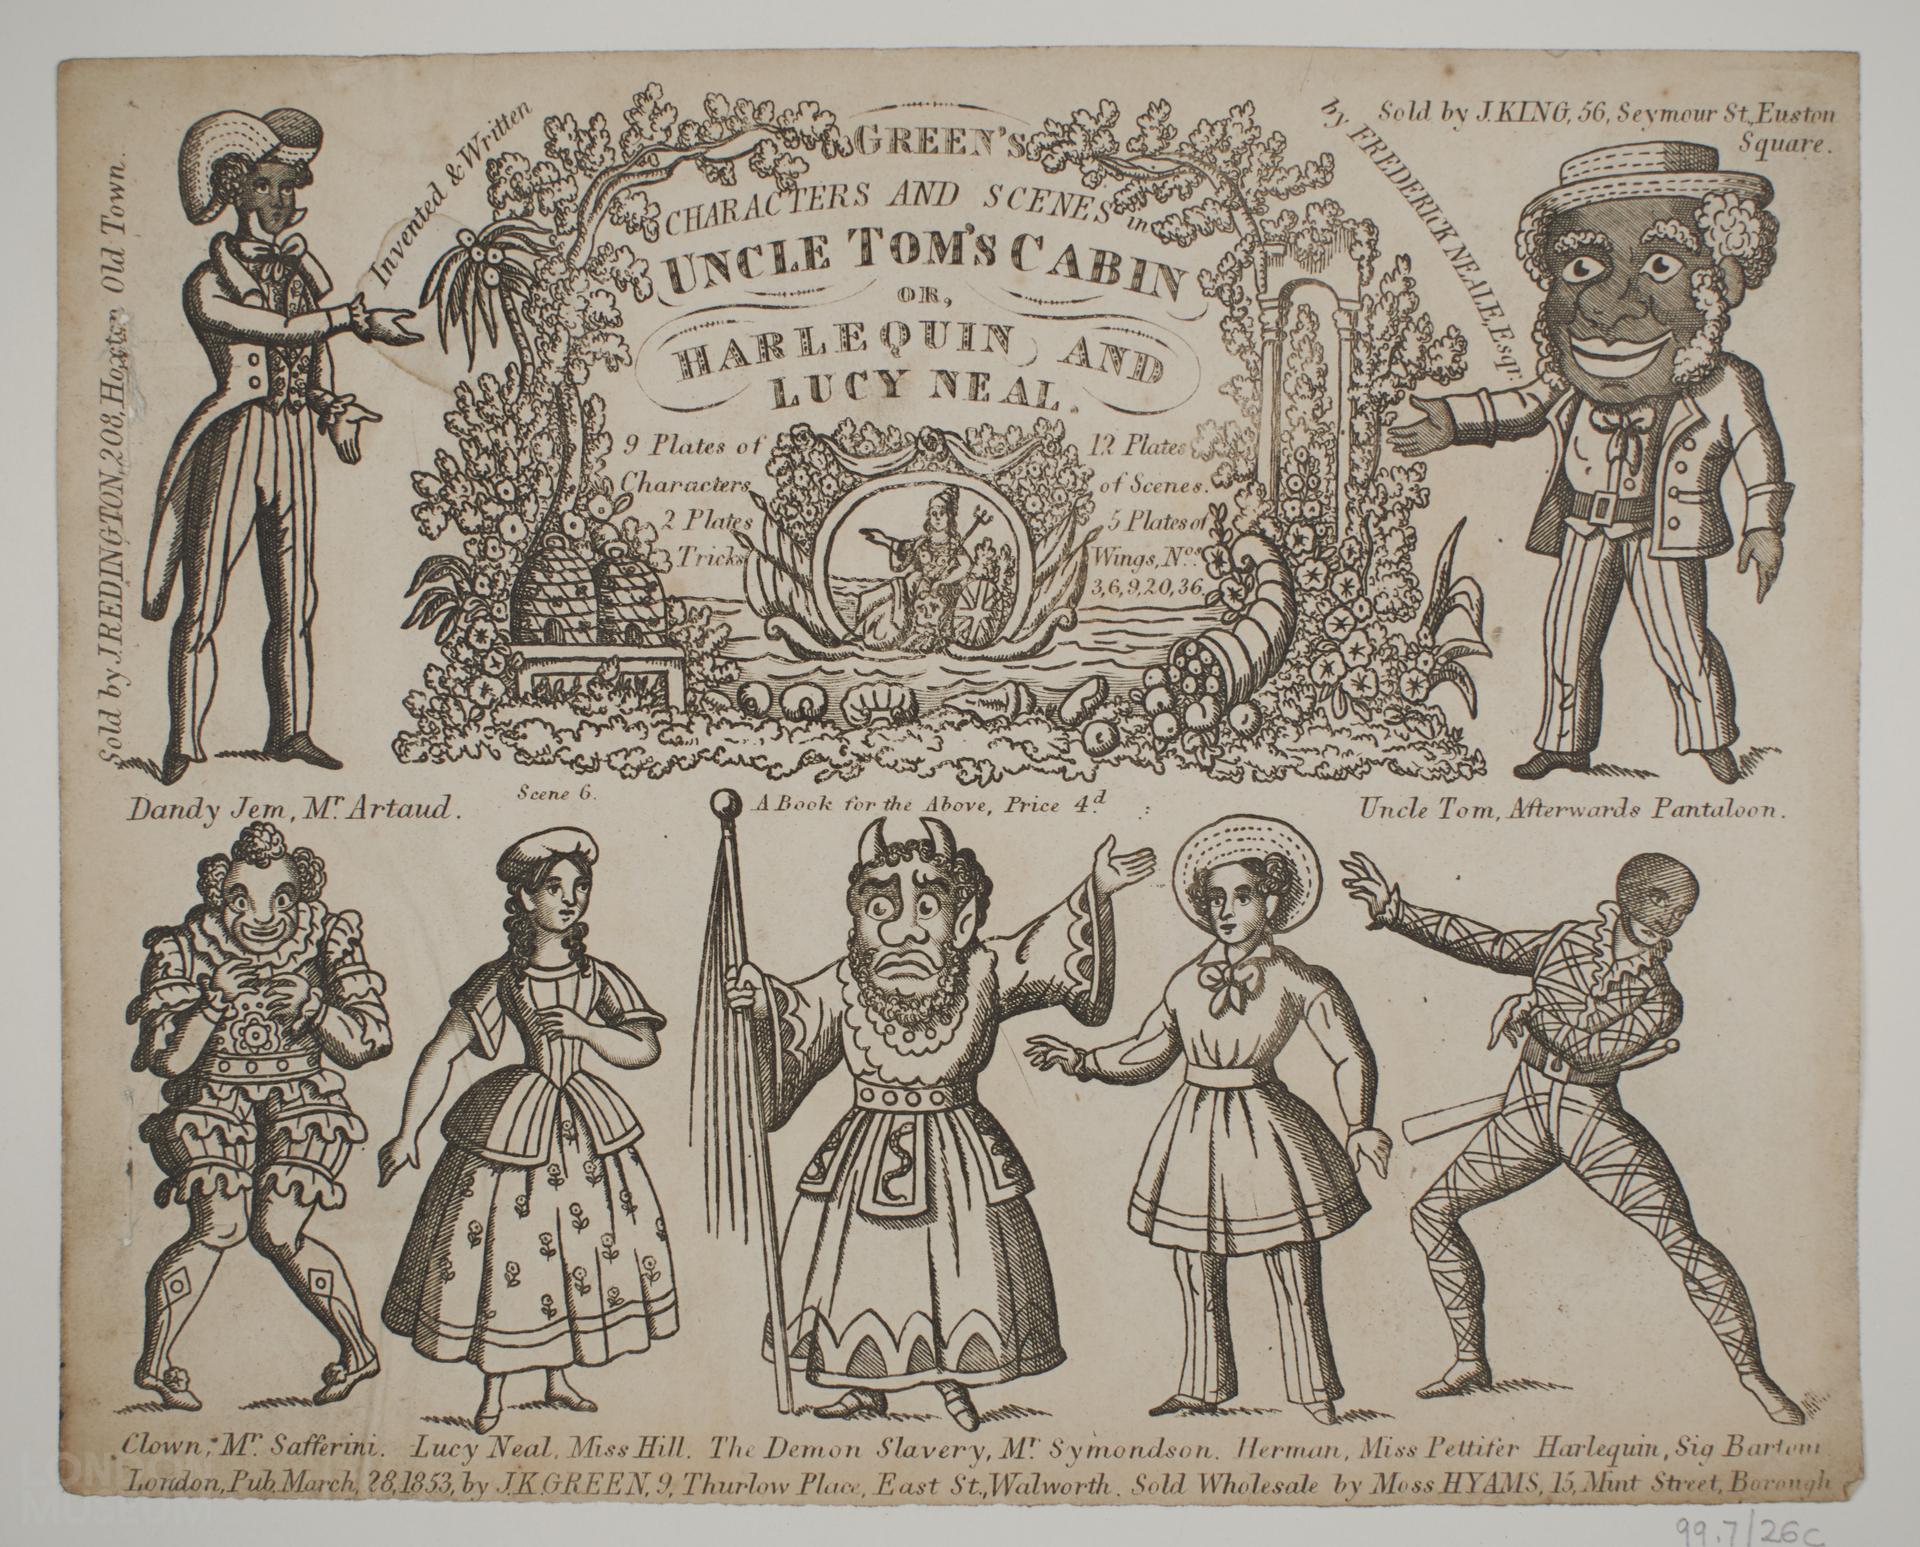 Sold by J. REDINGTON, 208, Hoxton Old Town.
Invented & Written
by FREDERICK NEALE, Esqr.
Sold by J. KING, 56, Seymour St., Euston
Square.
GREEN'S
CHARACTERS AND SCENES in
UNCLE TOM'S CABIN
OR,
HARLEQUIN AND
LUCY NEAL.
9 Plates of
Characters
2 Plates
Tricks
12 Plates
of Scenes.
5 Plates of
Wings, Nos.
3, 6, 9, 20, 36.
Dandy Jem, Mr. Artaud.
Scene 6.
A Book for the Above, Price 4d.
Uncle Tom, Afterwards Pantaloon.
Clown, Mr. Safferini. Lucy Neal, Miss Hill. The Demon Slavery, Mr. Symondson. Herman, Miss Pettifer Harlequin, Sig Bartom
London, Pub. March, 28, 1853, by J.K. GREEN, 9, Thurlow Place, East St., Walworth. Sold Wholesale by Moss HYAMS, 15, Mint Street, Borough
LONDON
MUSEUM
99.7/26c